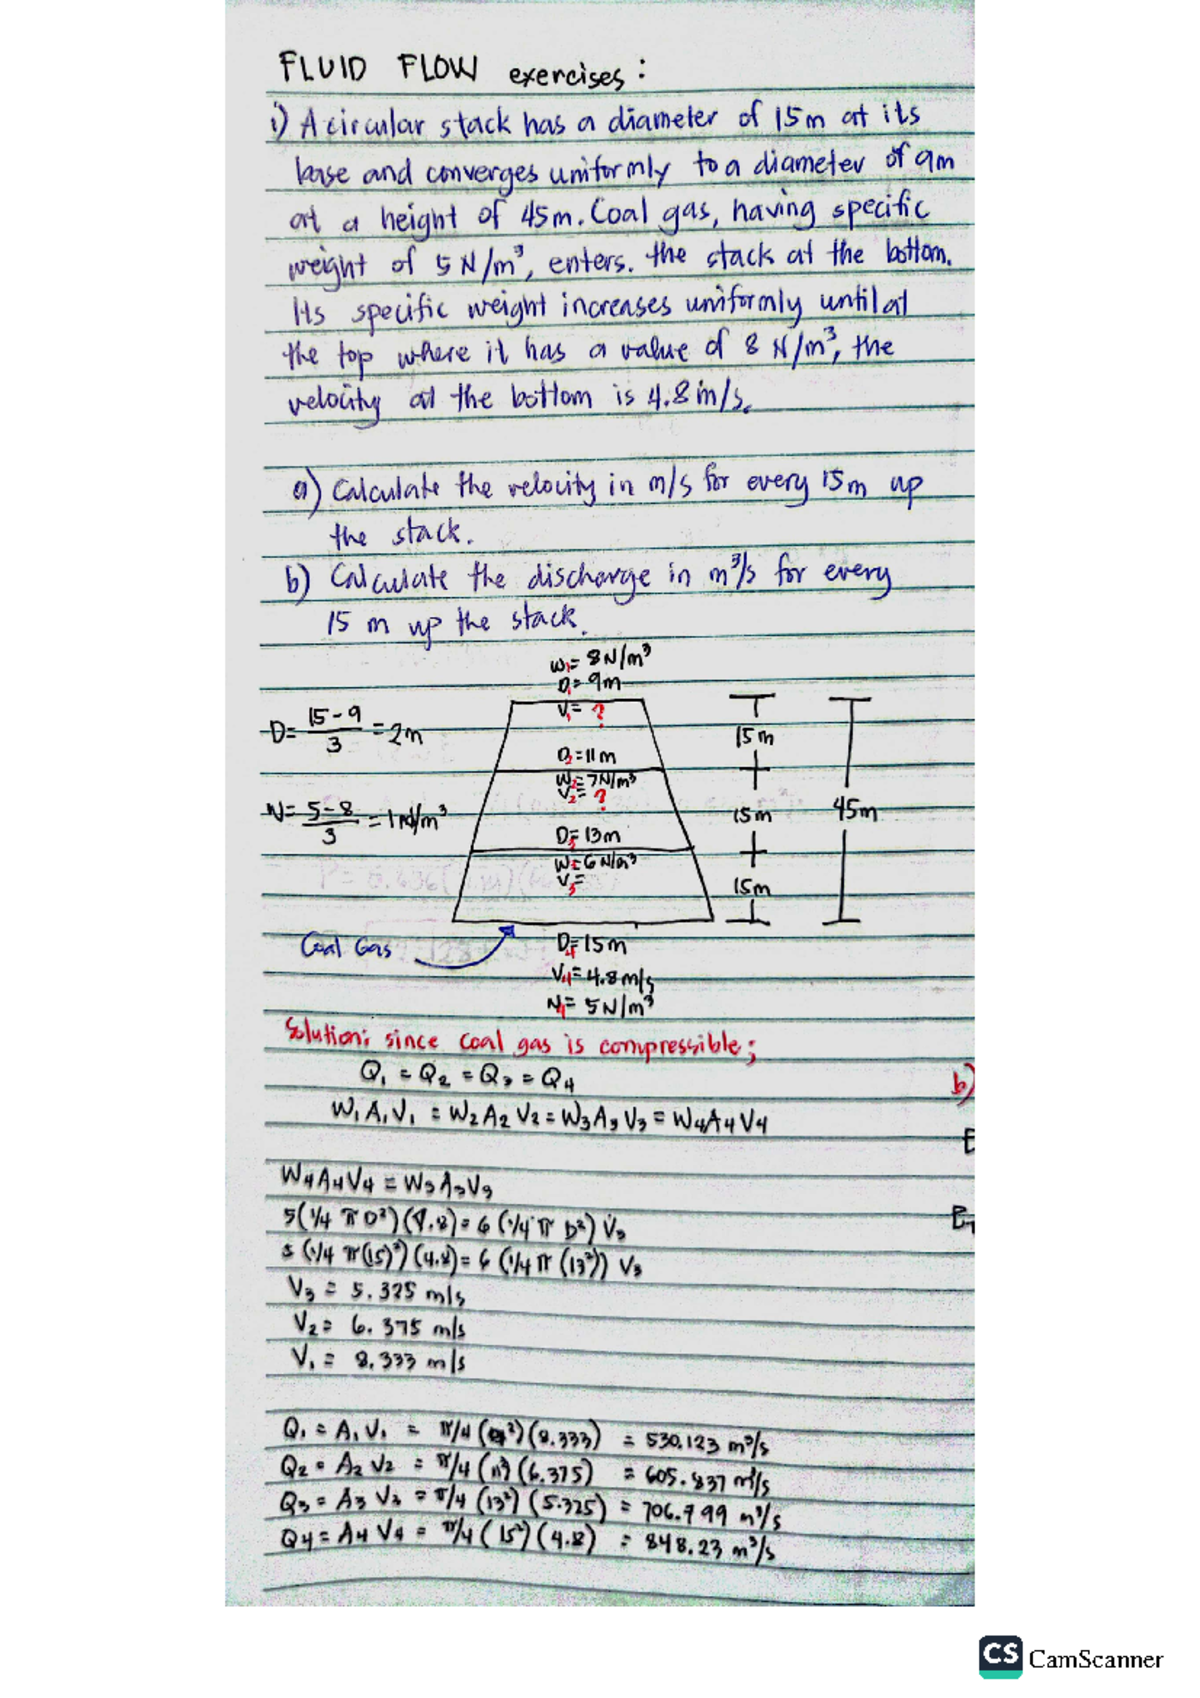 FLUID FLOW exercises:
1) A circular stack has a diameter of 15m at its
base and converges uniformly to a diameter of 9m
at a height of 45m. Coal gas, having specific
weight of 5 N/m³, enters. the stack at the bottom.
Its specific weight increases uniformly until at
the top where it has a value of 8 N/m³, the
velocity at the bottom is 4.8 m/s.
a) Calculate the velocity in m/s for every 15m up
the stack.
b) Calculate the discharge in m³/s for every
15 m up the stack.
W1= 8N/m³
D1= 9m
V1= ?
D= 15-9/3 = 2m
15m
D2=11m
W2=7N/m³
V2= ?
W= 5-8/3 = 1N/m³
15m
45m
D3=13m
W3=6N/m³
V3=
15m
Coal Gas
D4=15m
V4=4.8m/s
W1= 5N/m³
Solution: since coal gas is compressible;
Q1 = Q2 = Q3 = Q4
b)
W1A1V1 = W2A2V2 = W3A3V3 = W4A4V4
W4A4V4 = W3A3V3
5(1/4 π D²)(4.8) = 6 (1/4 π D²) V3
5 (1/4 π(15)²)(4.8) = 6 (1/4 π (13²)) V3
V3 = 5.325 m/s
V2 = 6.375 m/s
V1 = 8.333 m/s
Q1 = A1V1 = π/4 (9²)(8.333) = 530.123 m³/s
Q2 = A2V2 = π/4 (11²)(6.375) = 605.837 m³/s
Q3 = A3V3 = π/4 (13²)(5.325) = 706.799 m³/s
Q4 = A4V4 = π/4 (15²)(4.8) = 848.23 m³/s
CS CamScanner